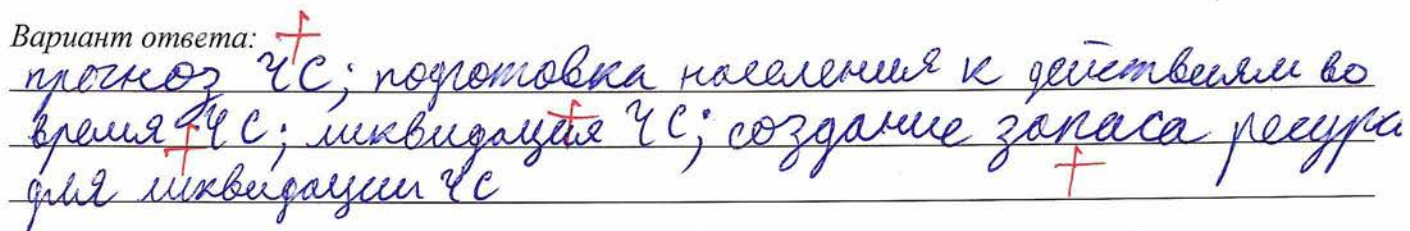 Вариант ответа:
прогноз ЧС; подготовка населения к действиям во
время ЧС; ликвидация ЧС; создание запаса ресурса
для ликвидации ЧС